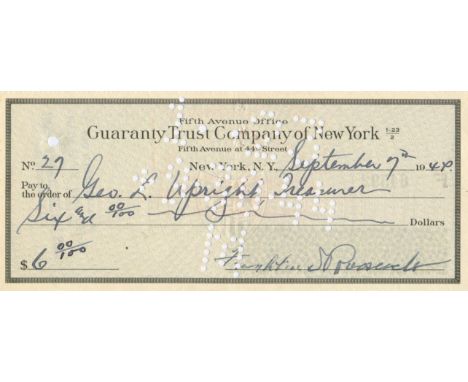 Fifth Avenue Office
Guaranty Trust Company of New York 1-23/2
Fifth Avenue at 44th Street
No. 27 New York, N.Y., September 7th 1940
Pay to the order of Geo. L. Upright, Treasurer
Six and 00/100 Dollars
$ 6 00/100 Franklin D Roosevelt